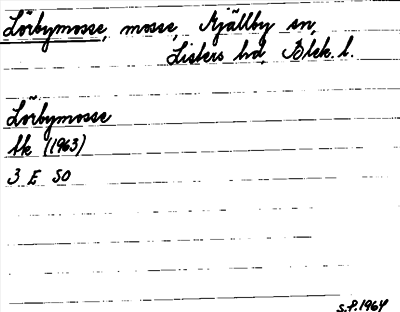 Lörbymosse, mosse, Mjällby sn,
Listers hd, Blek. l.
Lörbymosse
fk (1963)
3 E SO
S.P. 1964